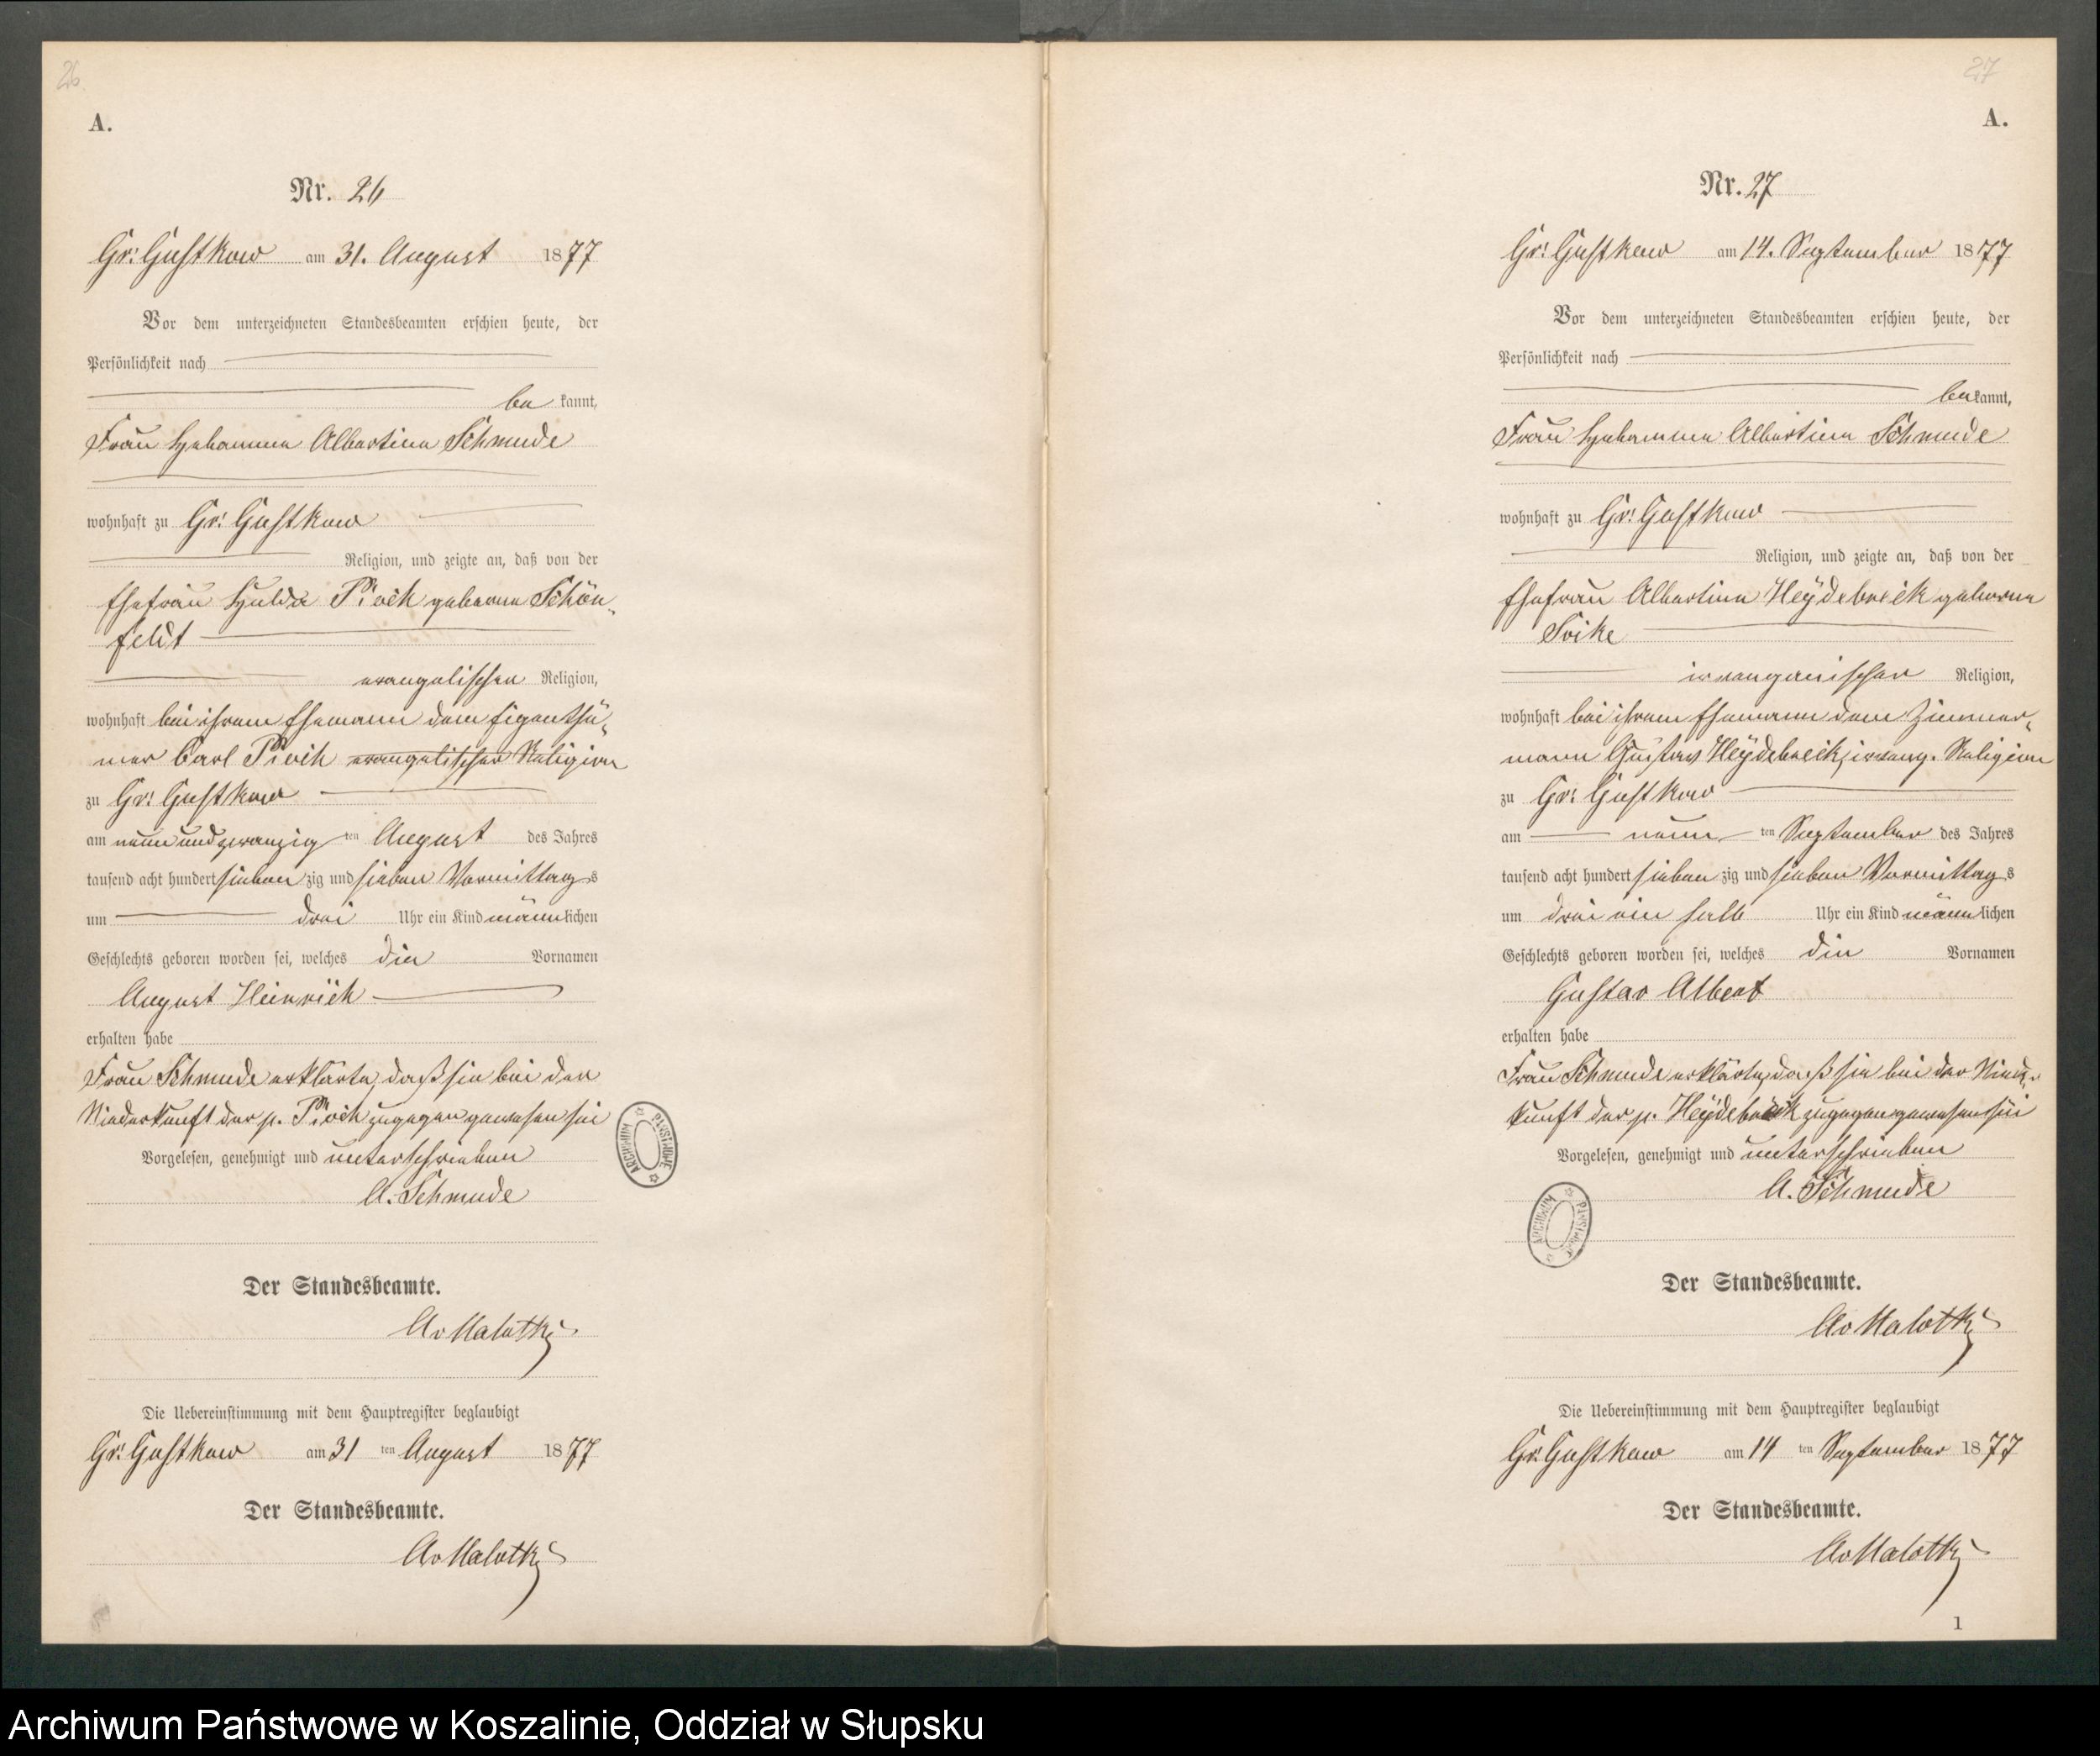 26
A.
Nr. 26
Gr: Gustkow am 31. August 1877
Vor dem unterzeichneten Standesbeamten erschien heute, der
Persönlichkeit nach
be kannt,
Frau Hebamme Albertine Schmude
wohnhaft zu Gr: Gustkow
Religion, und zeigte an, daß von der
Ehefrau Hulda Pioch geborne Schön-
feldt
evangelischen Religion,
wohnhaft bei ihrem Ehemann dem Eigenthü-
mer Carl Pioch evangelischer Religion
zu Gr: Gustkow
am neunundzwanzig ten August des Jahres
tausend acht hundert sieben zig und sieben Vormittags
um drei Uhr ein Kind männlichen
Geschlechts geboren worden sei, welches die Vornamen
August Heinrich
erhalten habe
Frau Schmude erklärte, daß sie bei der
Niederkunft der p. Pioch zugegen gewesen sei
Vorgelesen, genehmigt und unterschrieben
A. Schmude
Der Standesbeamte.
Av Malotki
Die Uebereinstimmung mit dem Hauptregister beglaubigt
Gr: Gustkow am 31 ten August 1877
Der Standesbeamte.
Av Malotki
ARCHIWUM PAŃSTWOWE
27
A.
Nr. 27
Gr: Gustkow am 14. September 1877
Vor dem unterzeichneten Standesbeamten erschien heute, der
Persönlichkeit nach
bekannt,
Frau Hebamme Albertine Schmude
wohnhaft zu Gr: Gustkow
Religion, und zeigte an, daß von der
Ehefrau Albertine Heydebreck geborne
Religion,
wohnhaft bei ihrem Ehemann dem Zimmer-
mann Gustav Heydebreck, Religion
zu Gr: Gustkow
am neun ten September des Jahres
tausend acht hundert sieben zig und sieben Vormittags
um drei ein halb Uhr ein Kind männlichen
Geschlechts geboren worden sei, welches die Vornamen
Gustav Albert
erhalten habe
Frau Schmude erklärte, daß sie bei der Nieder-
kunft der p. Heydebreck zugegen gewesen sei
Vorgelesen, genehmigt und unterschrieben
A. Schmude
ARCHIWUM PAŃSTWOWE
Der Standesbeamte.
Av Malotki
Die Uebereinstimmung mit dem Hauptregister beglaubigt
Gr: Gustkow am 14 ten September 1877
Der Standesbeamte.
Av Malotki
1
Archiwum Państwowe w Koszalinie, Oddział w Słupsku